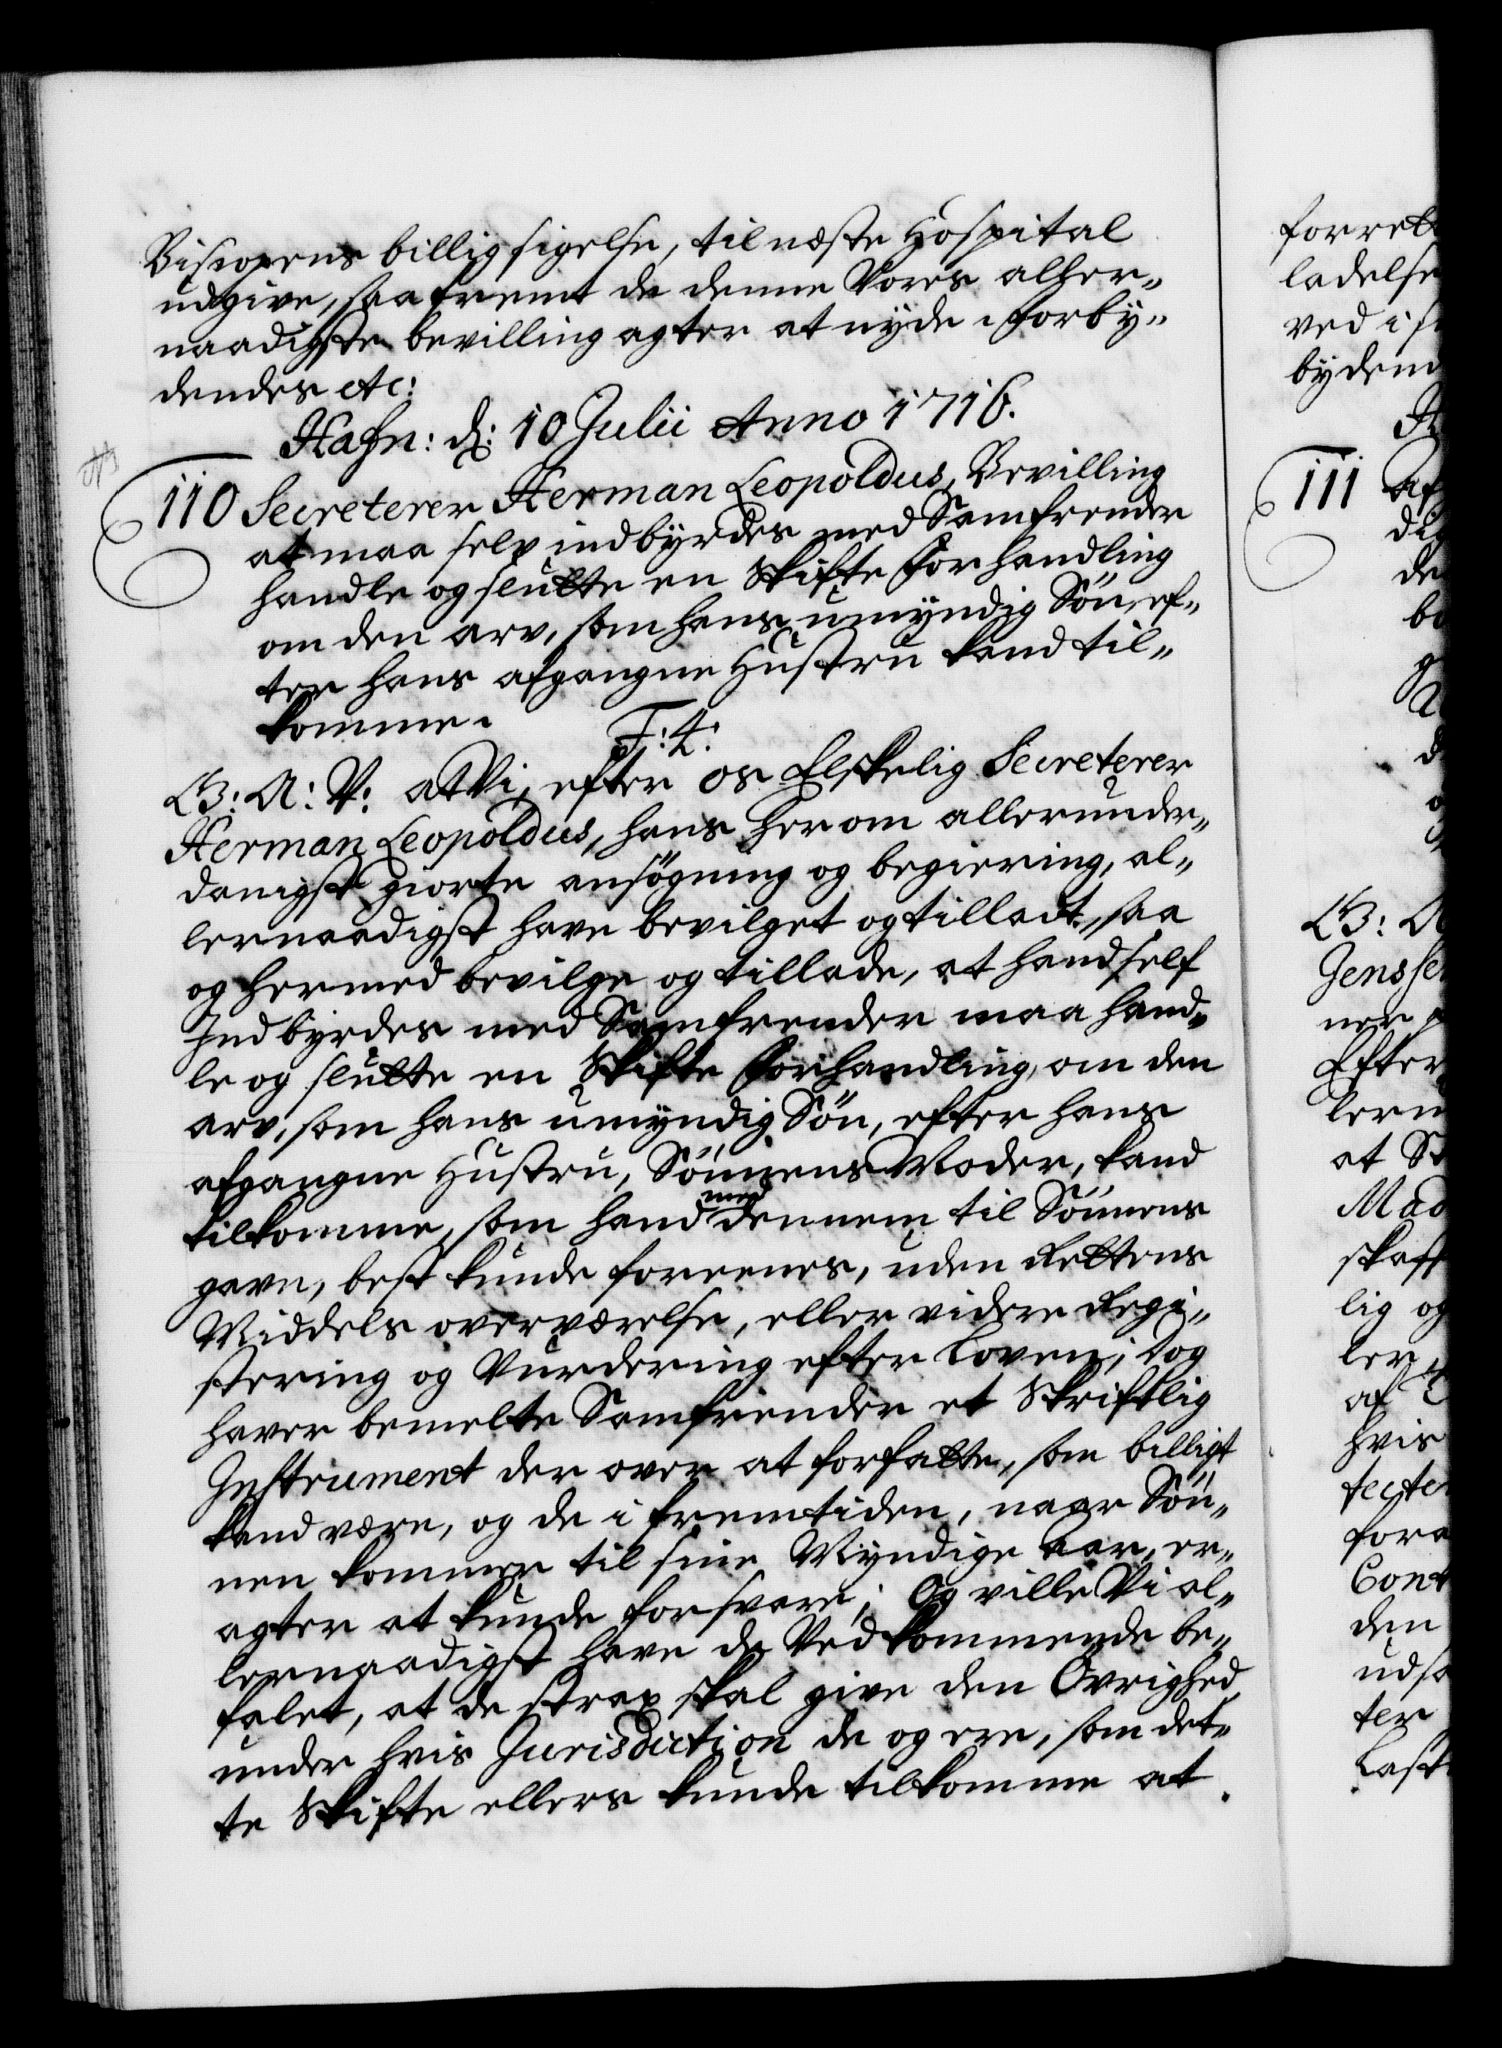 Biscopens billig sigelse, til næste Hospital
udgive, saafremt de denne Vores aller-
naadigste bevilling agter at nyde. Forby-
dendes etc:
Hafn: d: 10 Julii Anno 1716.
110 Secreterer Herman Leopoldus, Bevilling
at maa selv indbyrdes med Samfrender
handle og slutte en Skifte Forhandling
om den arv, som hans umyndig Søn, ef-
ter hans afgangne Hustru kand til-
komme.
F: 4:
G: A: V: at Vi, efter os Elskelig Secreterer
Herman Leopoldus, hans herom allerunder-
danigst giorte ansøgning og begiering, al-
lernaadigst have bevilget og tilladt, saa
og hermed bevilge og tillade, at hand self
Indbyrdes med Samfrender maa hand-
le og slutte en Skifte Forhandling, om den
arv, som hans umyndig Søn, efter hans
afgangne Hustru, Sønnens Moder, kand
tilkomme, som hand med dennem til Sønnens
gavn, best kunde foreenes, uden Rettens
Middels overværelse, eller videre Regi-
stering og Vurdering efter Loven; dog
haver bemelte Samfrender et Skriftlig
Instrument der over at forfatte, som billigt
kand være, og de i fremtiden, naar Søn-
nen kommer til sine Myndige Aar, er-
agter at kunde forsvare; Og ville Vi al-
lernaadigst have de Vedkommende be-
falet, at de strax skal give den Øvrighed
under hvis Jurisdiction de og ere, som det-
te Skifte ellers kunde tilkomme at
forrett
ladelse
ved i
bydend
111
G: A
Jensse
ner
Efter
lern
at
Mad
skaff
lig og
ler
af
hvis
fora
Cont
den
udsa
ter